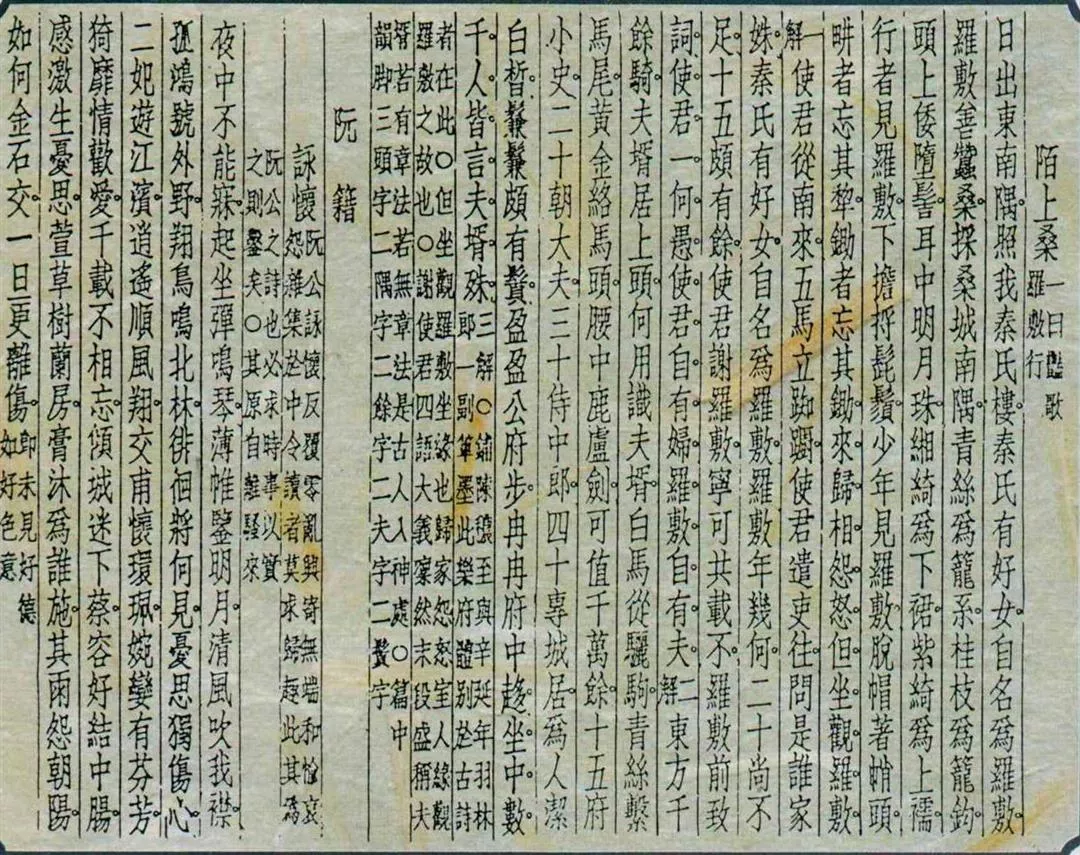 陌上桑一曰豔歌
羅敷行
日出東南隅照我秦氏樓秦氏有好女自名爲羅敷
羅敷善蠶桑採桑城南隅青絲爲籠系桂枝爲籠鉤
頭上倭墮髻耳中明月珠緗綺爲下裙紫綺爲上襦
行者見羅敷下擔捋髭鬚少年見羅敷脫帽著帩頭
畊者忘其犂鋤者忘其鋤來歸相怨怒但坐觀羅敷
一解使君從南來五馬立踟躕使君遣吏往問是誰家
姝秦氏有好女自名爲羅敷羅敷年幾何二十尚不
足十五頗有餘使君謝羅敷寧可共載不羅敷前致
詞使君一何愚使君自有婦羅敷自有夫二解東方千
餘騎夫壻居上頭何用識夫壻白馬從驪駒青絲繫
馬尾黃金絡馬頭腰中鹿盧劍可值千萬餘十五府
小史二十朝大夫三十侍中郎四十專城居爲人潔
白皙鬑鬑頗有鬚盈盈公府步冉冉府中趨坐中數
千人皆言夫壻殊三解○鋪陳穠至與辛延年羽林
郎一副筆墨此樂府體別於古詩
者在此○但坐觀羅敷坐緣也歸家怨怒室人緣觀
羅敷之故也○謝使君四語大義凜然末段盛稱夫
壻若有章法若無章法是古人入神處○篇中
韻脚三頭字二隅字二餘字二夫字二鬚字
阮籍
詠懷阮公詠懷反覆零亂興寄無端和愉哀
怨雜集於中令讀者莫求歸趣此其爲
阮公之詩也必求時事以實
之則鑿矣○其原自離騷來
夜中不能寐起坐彈鳴琴薄帷鑒明月清風吹我襟
孤鴻號外野翔鳥鳴北林徘徊將何見憂思獨傷心
二妃遊江濱逍遙順風翔交甫懷環珮婉孌有芬芳
猗靡情歡愛千載不相忘傾城迷下蔡容好結中腸
感激生憂思萱草樹蘭房膏沐爲誰施其雨怨朝陽
如何金石交一旦更離傷即未見好德
如好色意